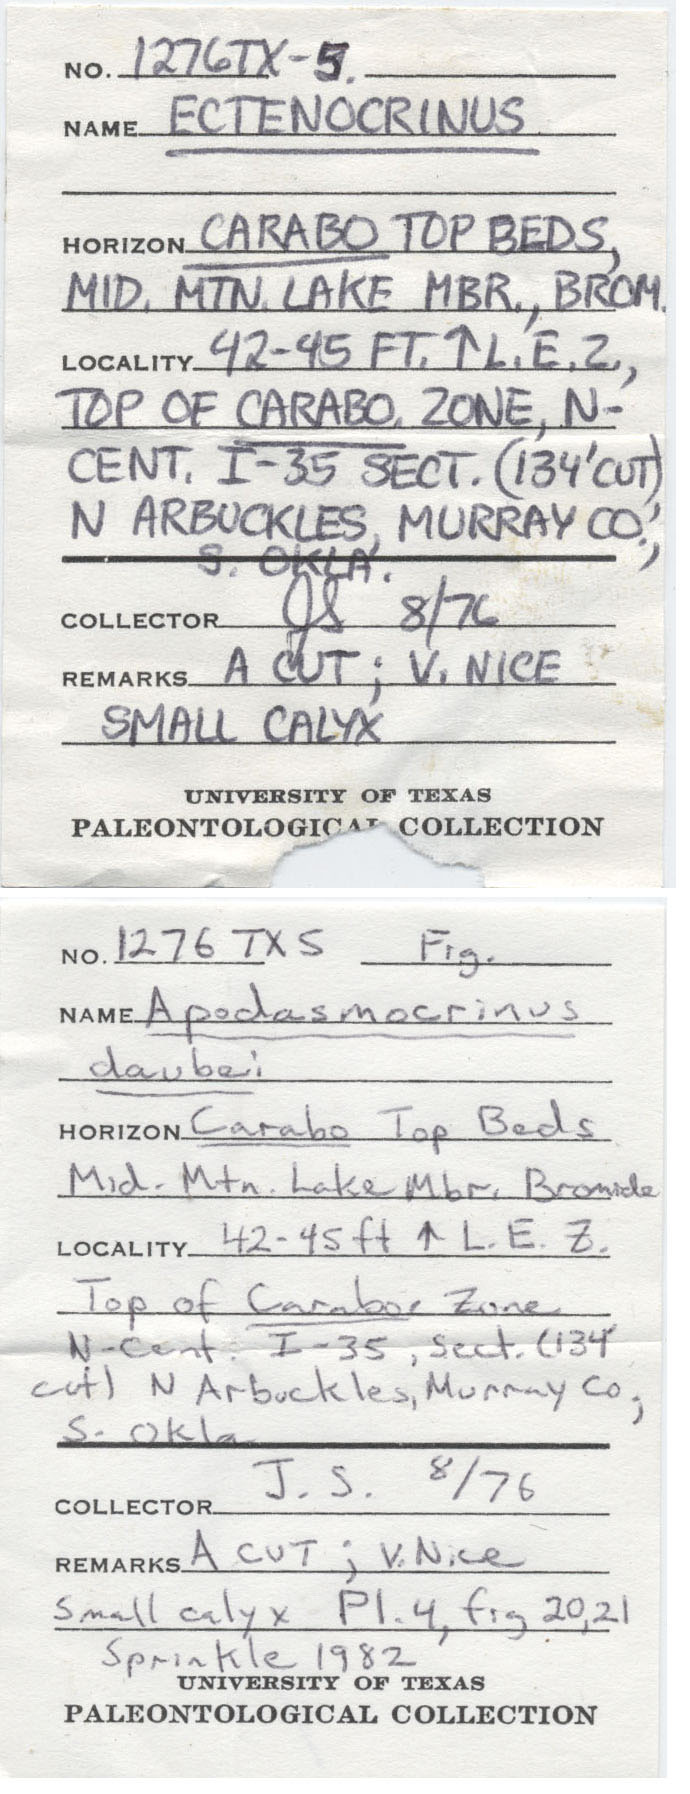 NO. 1276TX-5.
NAME ECTENOCRINUS
HORIZON CARABO TOP BEDS,
MID. MTN. LAKE MBR., BROM.
LOCALITY 42-45 FT. ↑ L.E.Z.,
TOP OF CARABO. ZONE, N-
CENT. I-35 SECT. (134' CUT)
N ARBUCKLES, MURRAY CO.,
S. OKLA.
COLLECTOR JS 8/76
REMARKS A CUT; V. NICE
SMALL CALYX
UNIVERSITY OF TEXAS
PALEONTOLOGICAL COLLECTION
NO. 1276 TX 5 Fig.
NAME Apodasmocrinus
daubei
HORIZON Carabo Top Beds
Mid. Mtn. Lake Mbr. Bromide
LOCALITY 42-45 ft ↑ L. E. Z.
Top of Carabo. Zone
N-Cent. I-35, Sect. (134'
cut) N Arbuckles, Murray Co,
S. Okla
COLLECTOR J. S. 8/76
REMARKS A CUT; V. Nice
Small calyx Pl. 4, fig 20,21
Sprinkle 1982
UNIVERSITY OF TEXAS
PALEONTOLOGICAL COLLECTION